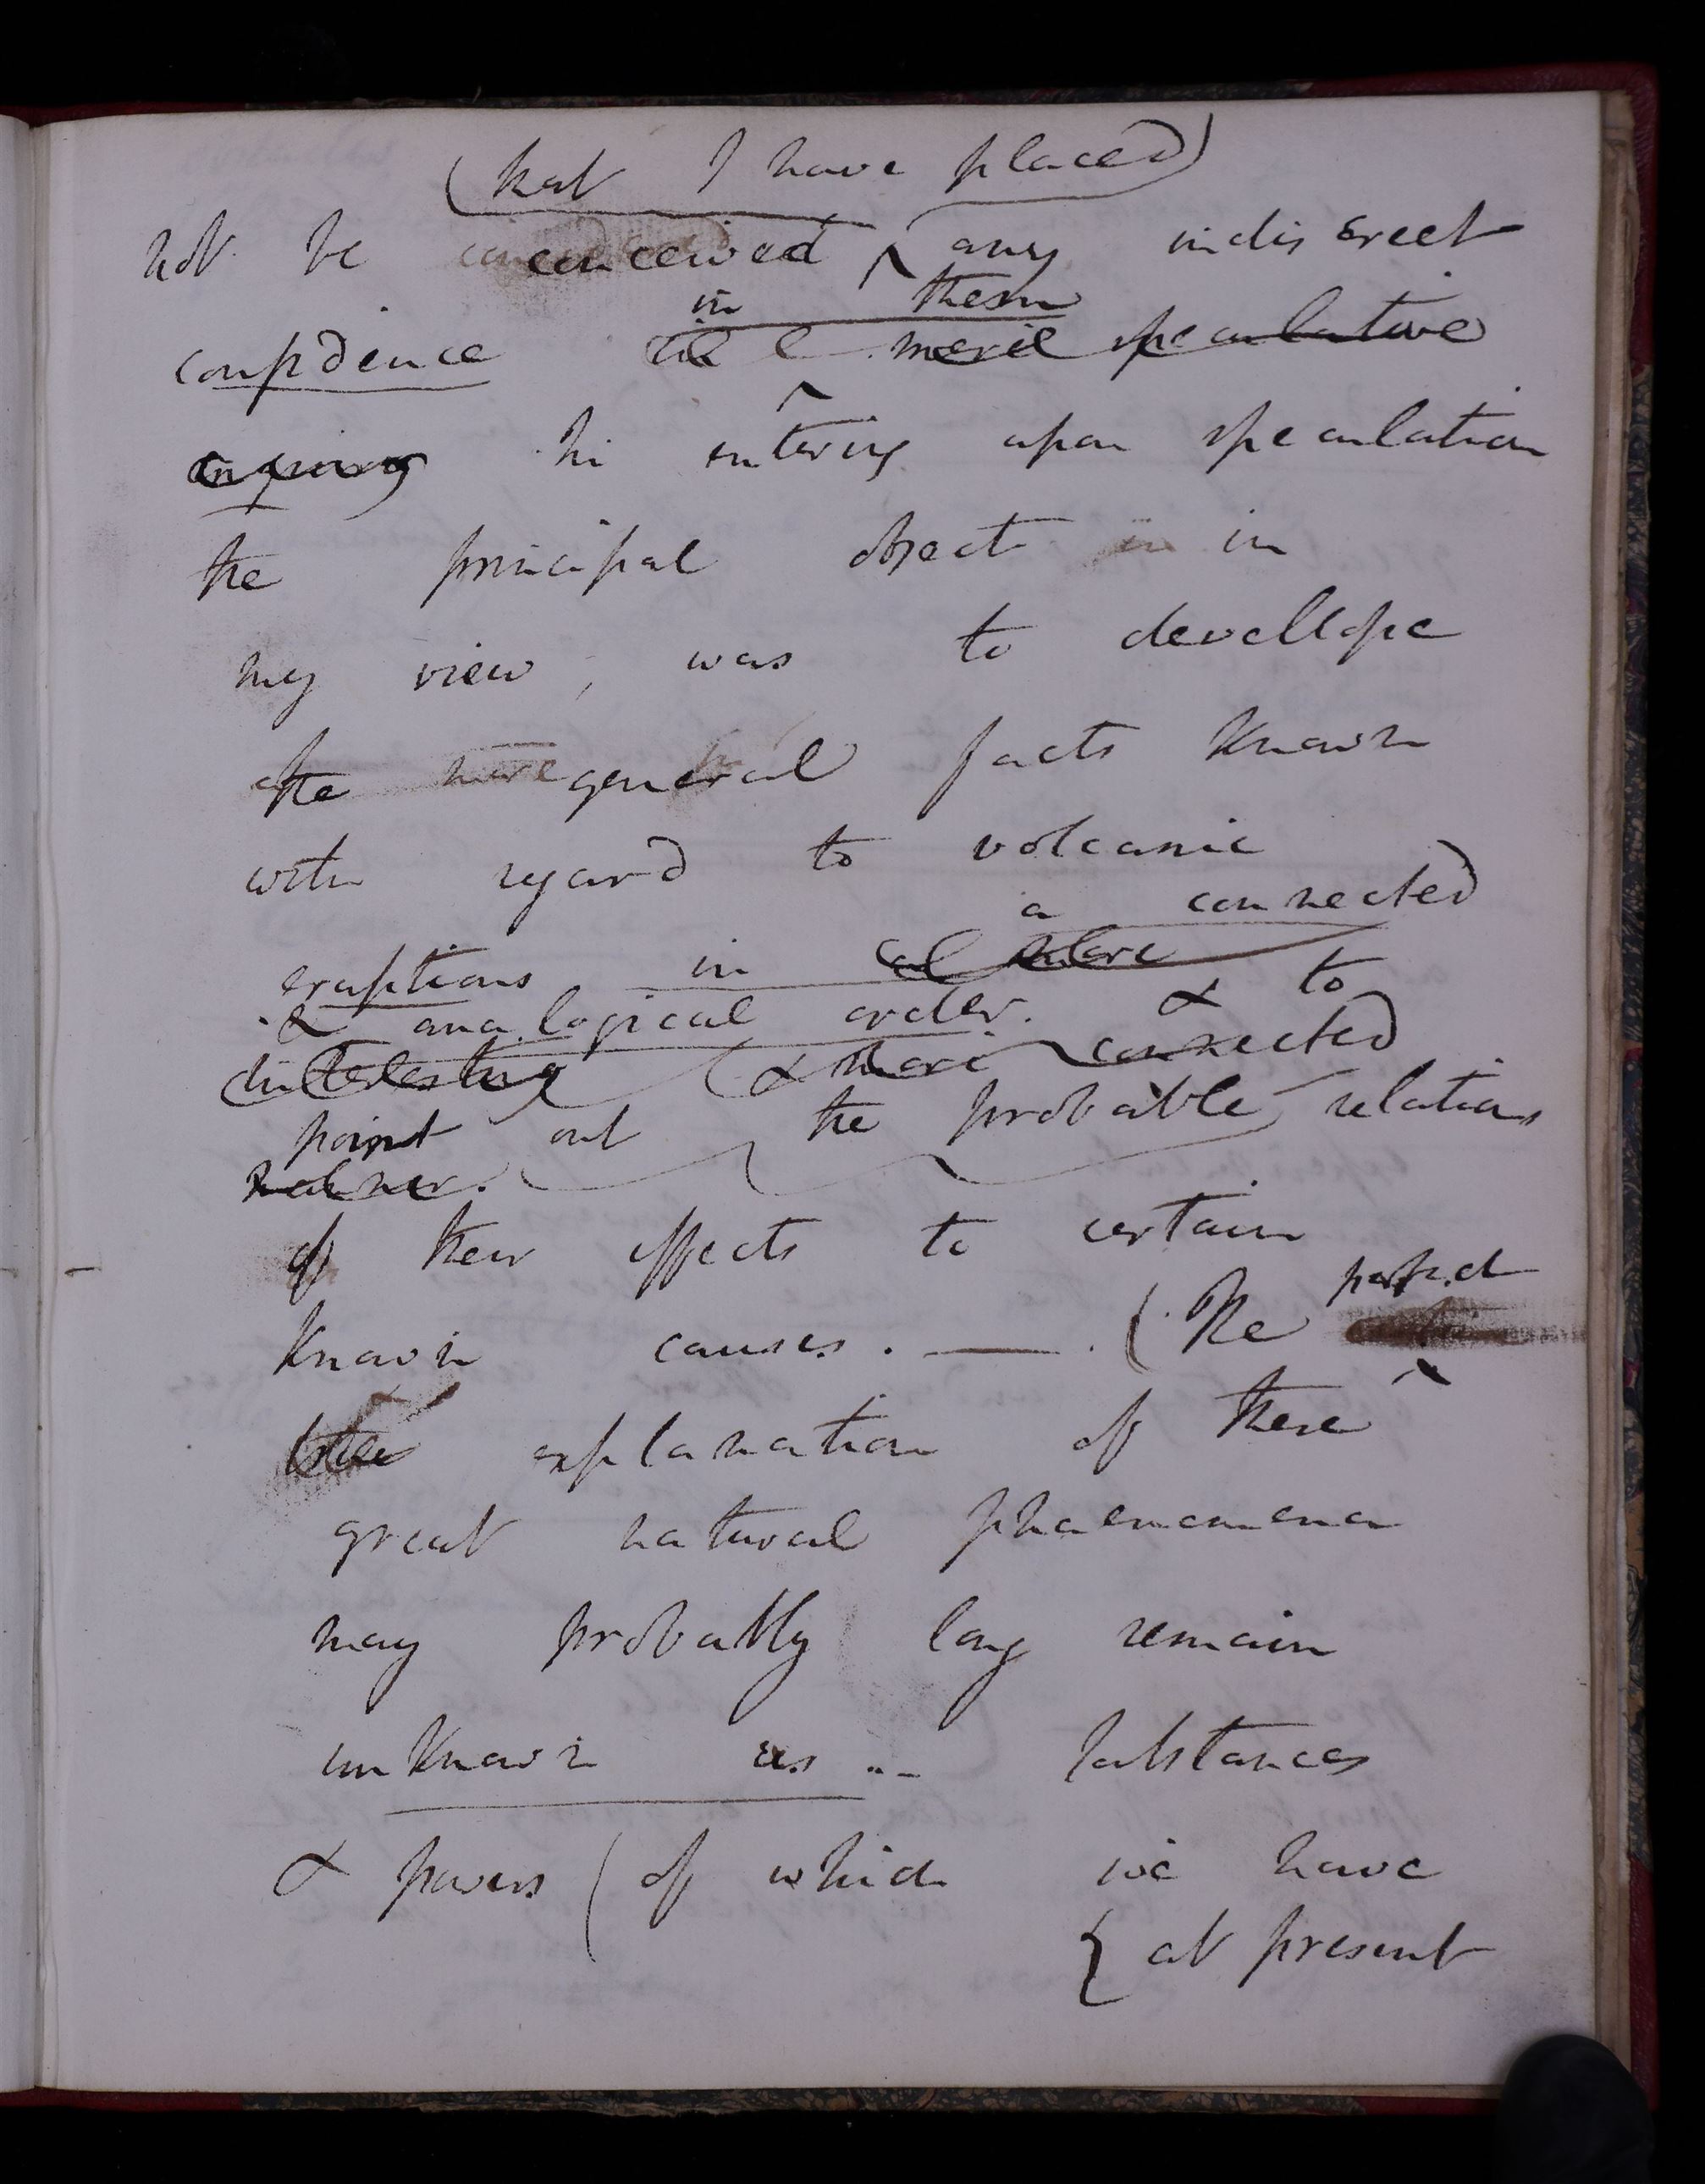 (that I have placed)
not be conceived ^ any indiscreet
in them
confidence mere speculative
enquiry In entering upon speculation
the principal object in
my view, was to develope
the more general facts known
with regard to volcanic
a connected
eruptions in a more
& analogical order. & to
interesting (& more connected
point out the probable relations
manner.
of their effects to certain
known causes. — . (The perfect
explanation of these
great natural phaenomena
may probably long remain
unknown as .. Substances
& powers (of which we have
{ at present